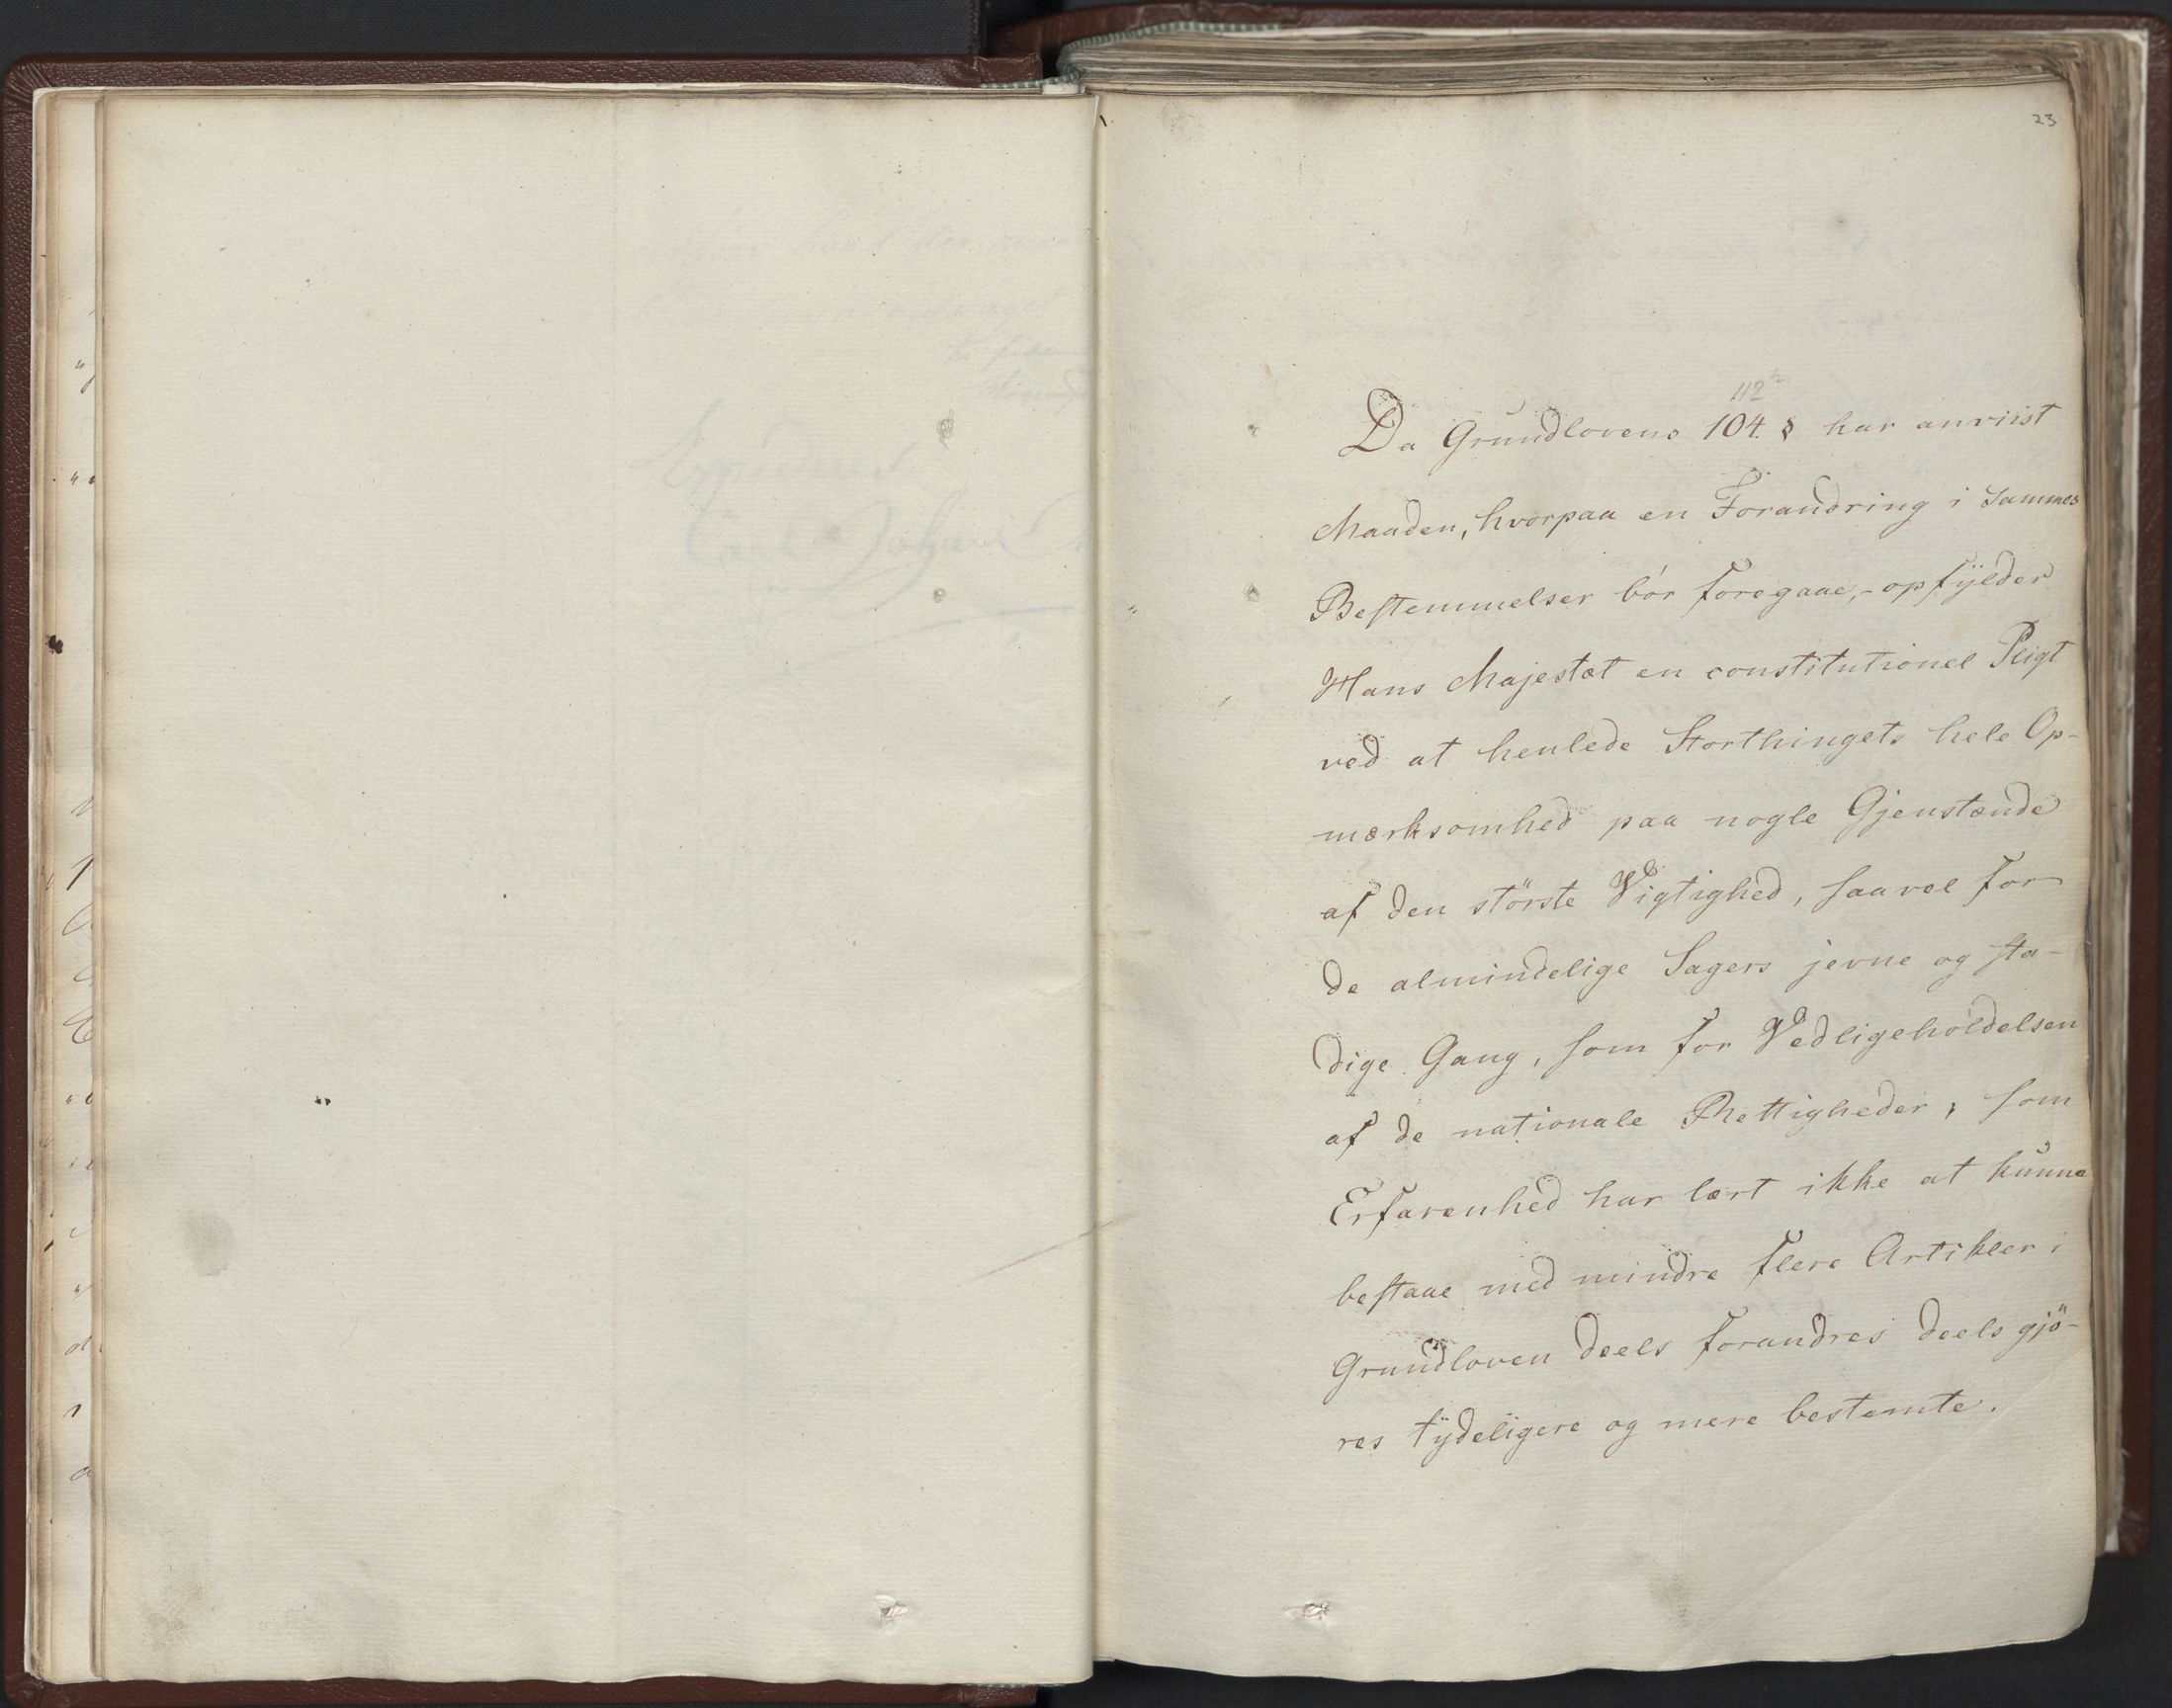 23
112
Da Grundlovens 104 § har anviist
Maaden, hvorpaa en Forandring i Sammes
Bestemmelser bör foregaae, - opfÿlder
Hans Majestæt en constitutionel Pligt
ved at henlede Storthingets hele Op-
mærksomhed paa nogle Gjenstænde
af den störste Vigtighed, saavel for
de almindelige Sagers jevne og sta-
dige Gang, som for Vedligeholdelsen
af de nationale Rettigheder, som
Erfarenhed har lært ikke at kunne
bestaae med mindre flere Artikler i
Grundloven deels forandres deels gjö-
res tÿdeligere og mere bestemte.